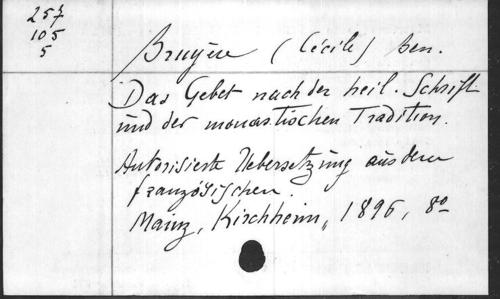 257
105
5
Bruyère (Cécile) Ben.
Das Gebet nach der heil. Schrift
und der monastischen Tradition.
Autorisierte Uebersetzung aus dem
französischen.
Mainz, Kirchheim, 1896, 8o